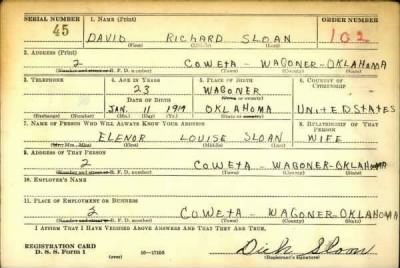 SERIAL NUMBER 1. NAME (Print) ORDER NUMBER
45 DAVID RICHARD SLOAN 102
(First) (Middle) (Last)
2. ADDRESS (Print)
2 COWETA - WAGONER - OKLAHOMA
(Number and street or R. F. D. number) (Town) (County) (State)
3. TELEPHONE 4. AGE IN YEARS 5. PLACE OF BIRTH 6. COUNTRY OF CITIZENSHIP
23 WAGONER
DATE OF BIRTH (Town or county)
JAN. 11 1917 OKLAHOMA UNITED STATES
(Exchange) (Number) (Mo.) (Day) (Yr.) (State or country)
7. NAME OF PERSON WHO WILL ALWAYS KNOW YOUR ADDRESS 8. RELATIONSHIP OF THAT PERSON
ELENOR LOUISE SLOAN WIFE
(Mr., Mrs., Miss) (First) (Middle) (Last)
9. ADDRESS OF THAT PERSON
2 COWETA - WAGONER - OKLAHOMA
(Number and street or R. F. D. number) (Town) (County) (State)
10. EMPLOYER'S NAME
11. PLACE OF EMPLOYMENT OR BUSINESS
2 COWETA - WAGONER - OKLAHOMA
(Number and street or R. F. D. number) (Town) (County) (State)
I AFFIRM THAT I HAVE VERIFIED ABOVE ANSWERS AND THAT THEY ARE TRUE.
REGISTRATION CARD
D. S. S. Form 1 (over) 16-17105 Dick Sloan
(Registrant's signature)